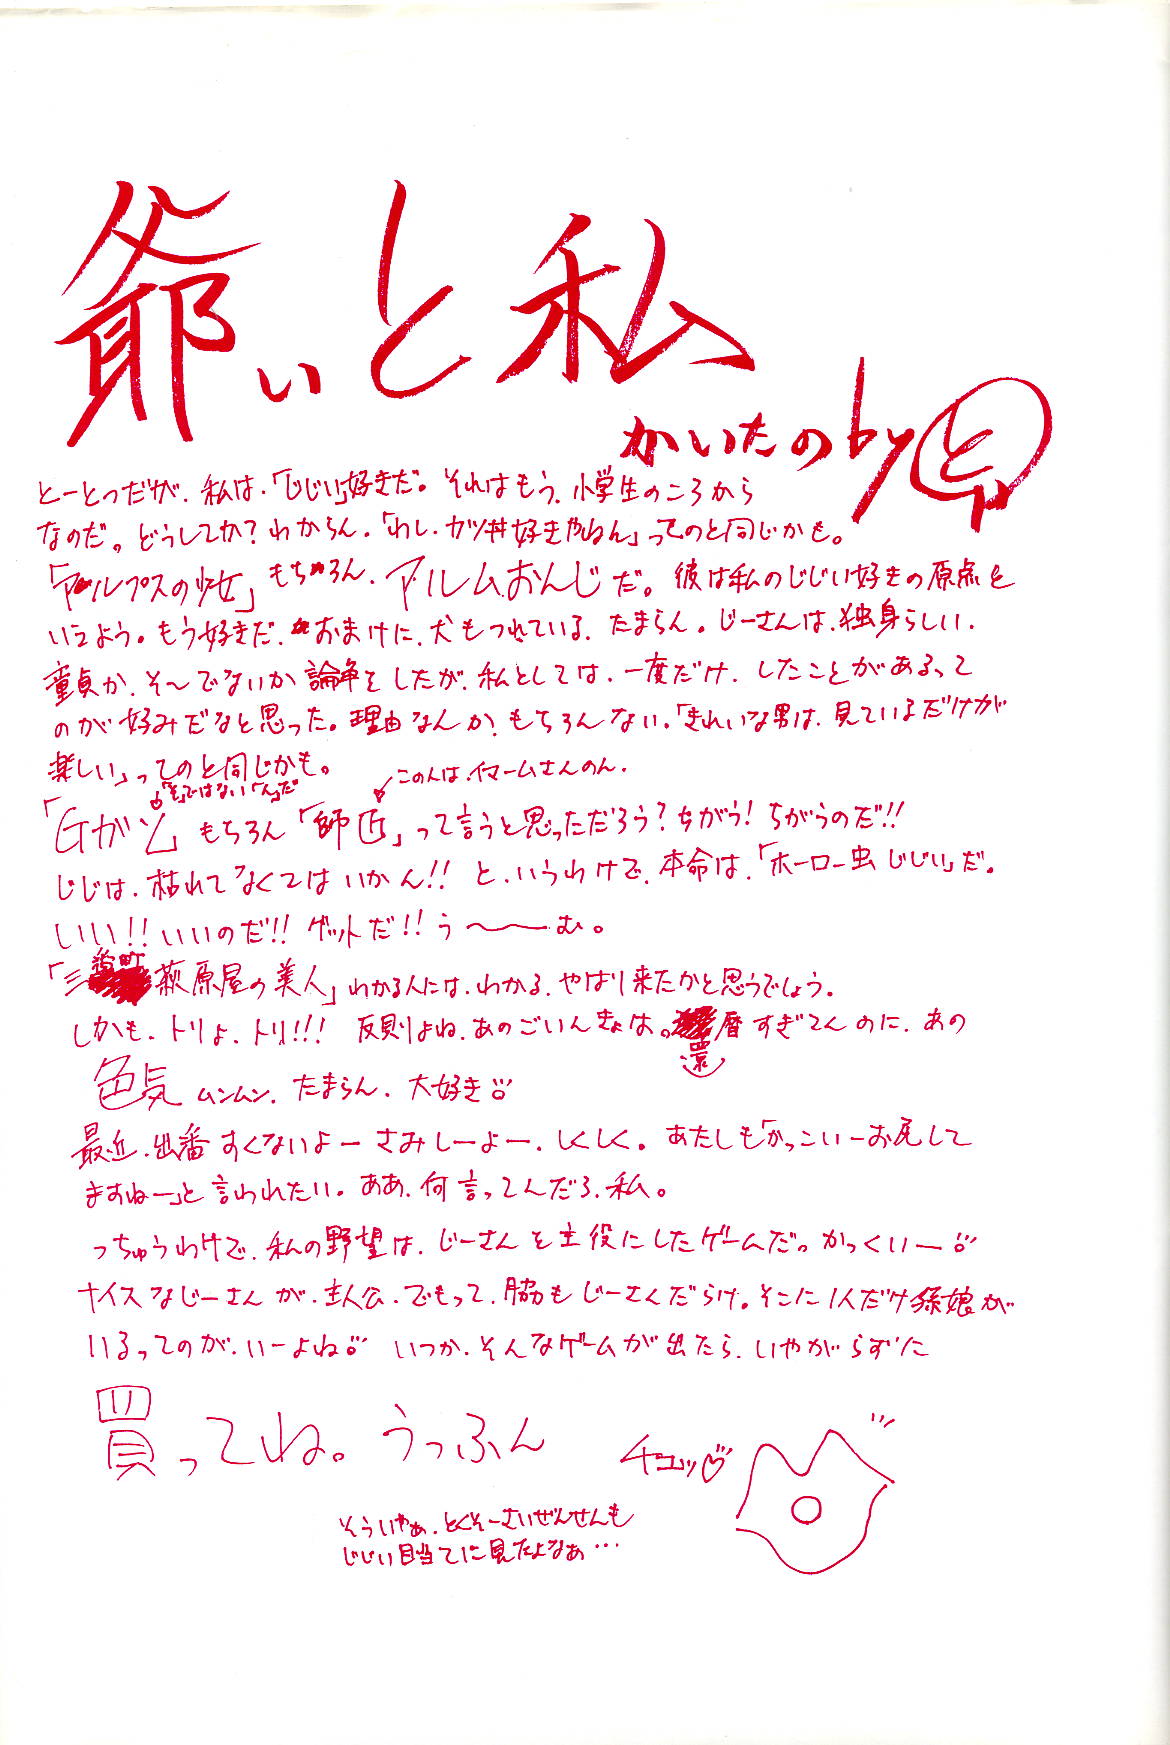 爺ぃと私
かいたの by と
とーとつだが、私は、「じじい」好きだ。それはもう、小学生のころから
なのだ。どうしてか?わからん。「わし、カツ丼好きやねん」ってのと同じかも。
「アルプスの少女」もちろん、アルムおんじだ。彼は私のじじい好きの原点と
いえよう。もう好きだ、おまけに、犬もつれている、たまらん。じーさんは、独身らしい、
童貞か、そ〜でないか論争をしたが、私としては、一度だけ、したことがあるって
のが好みだなと思った。理由なんか、もちろんない。「きれいな男は、見ているだけが
楽しい」ってのと同じかも。
「そ」ではない「ん」だ
このんは、イマームさんのん、
「Gガン」もちろん「師匠」って言うと思っただろう?ちがう!ちがうのだ!!
じじは、枯れてなくてはいかん!! と、いうわけで、本命は、「ホーロー虫じじい」だ。
いい!!いいのだ!!ゲットだ!!う〜〜む。
「三番町萩原屋の美人」わかる人には、わかる、やはり来たかと思うでしょう。
しかも、トリよ、トリ!!! 反則よね、あのごいんきょは。還暦すぎてんのに、あの
色気ムンムン、たまらん、大好き
最近、出番すくないよーさみしーよー、しくしく。あたしも「かっこいーお尻して
ますねー」と言われたい。ああ、何言ってんだろ、私。
っちゅうわけで、私の野望は、じーさんを主役にしたゲームだ。かっくいー
ナイスなじーさんが、主人公、でもって、脇もじーさんだらけ。そこに1人だけ孫娘が
いるってのが、いーよね いつか、そんなゲームが出たら、いやがらずに
買ってね。うっふん
チュッ♡
そういやぁ、とくそーさいぜんせんも
じじい目当てに見たよなぁ…